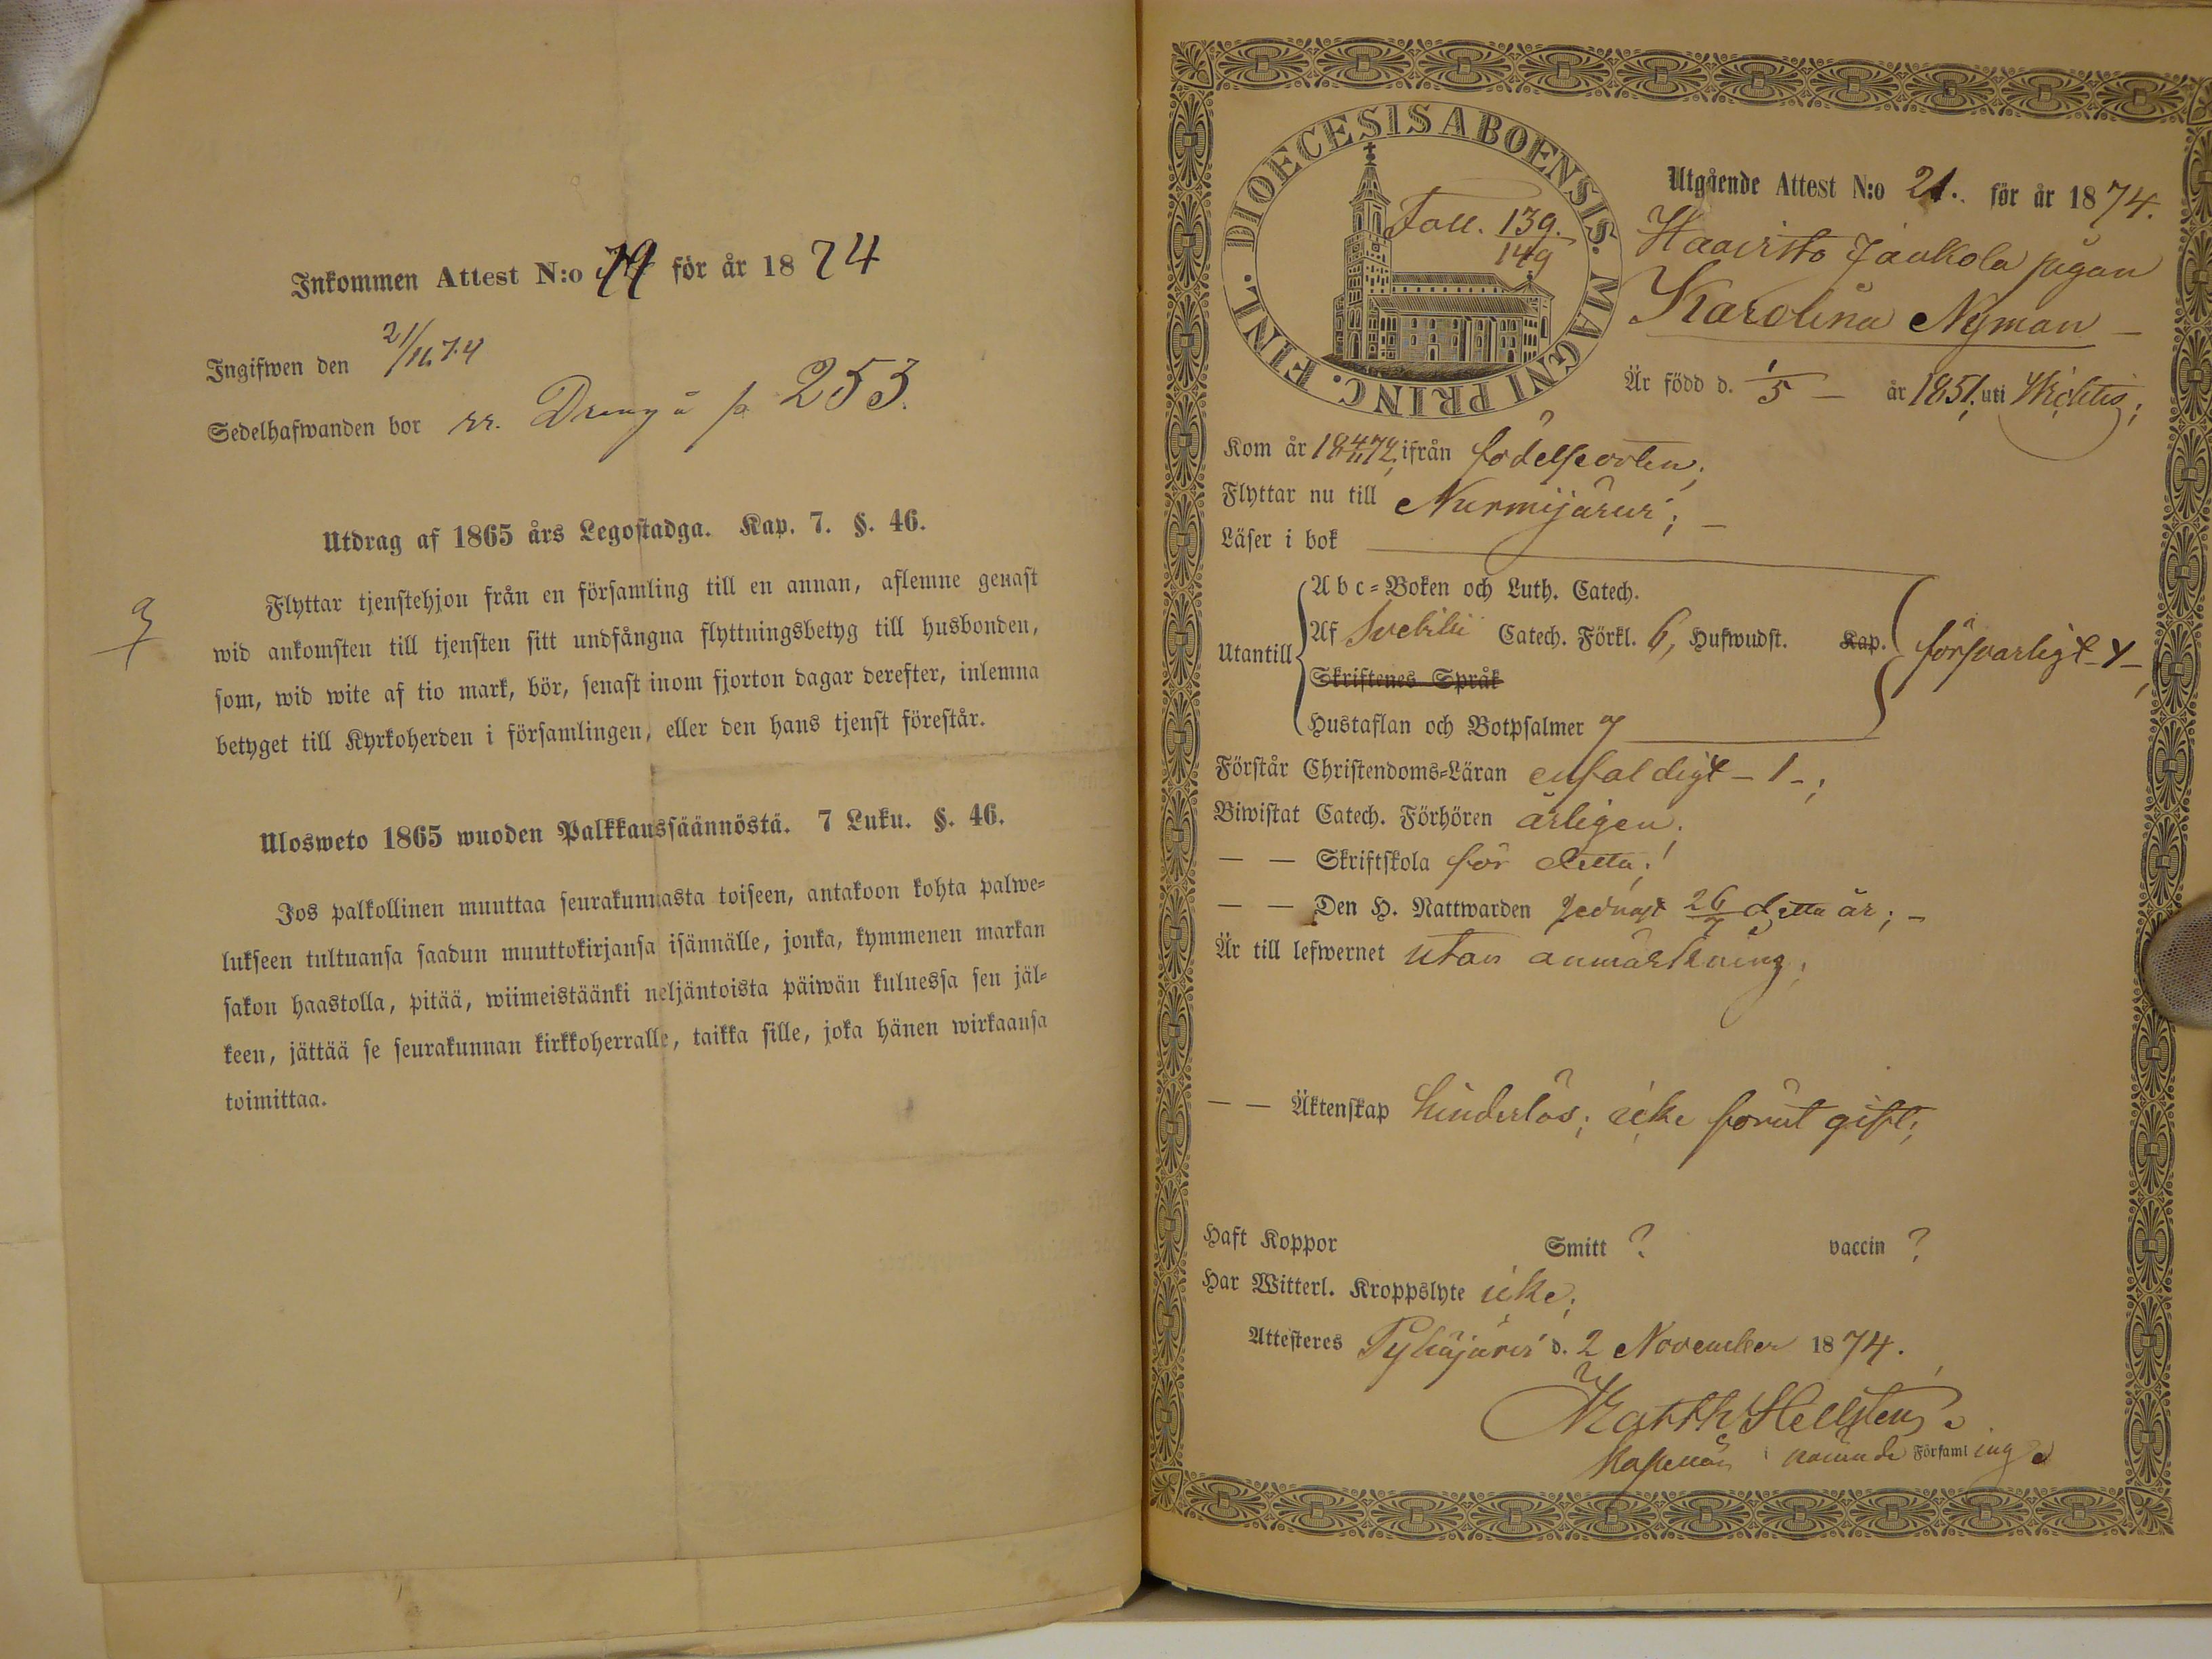 Inkommen Attest N:o 79 för år 1874
Ingifwen den 21/11 74
Sedelhafwanden bor rr. 253.
Utdrag af 1865 års Legostadga. Kap. 7. §. 46.
Flyttar tjenstehjon från en församling till en annan, aflemne genast
wid ankomsten till tjensten sitt undfångna flyttningsbetyg till husbonden,
som, wid wite af tio mark, bör, senast inom fjorton dagar derefter, inlemna
betyget till Kyrkoherden i församlingen, eller den hans tjenst förestår.
Ulosweto 1865 wuoden Palkkaussäännöstä. 7 Luku. §. 46.
Jos palkollinen muuttaa seurakunnasta toiseen, antakoon kohta palwe=
lukseen tultuansa saadun muuttokirjansa isännälle, jonka, kymmenen markan
sakon haastolla, pitää, wiimeistäänki neljäntoista päiwän kuluessa sen jäl=
keen, jättää se seurakunnan kirkkoherralle, taikka sille, joka hänen wirkaansa
toimittaa.
DIOECESIS ABOENSIS. MAGNI PRINC. FINL.
Foll. 139.
149
Utgående Attest N:o 21. för år 1874.
Haavisto Jaakola pigan
Karolina Nyman
Är född d. 1/5 år 1851. uti Wichtis;
Kom år 1872. ifrån födelseorten;
Flyttar nu till Nurmijärvi;
Läser i bok
Utantill
Abc=Boken och Luth. Catech.
Af Svebilii Catech. Förkl. 6, Hufwudst. Kap.
Skriftenes Språk
Hustaflan och Botpsalmer 7
försvarligt
Förstår Christendoms=Läran enfaldigt - 1 -;
Biwistat Catech. Förhören årligen;
— — Skriftskola för detta;
— — Den H. Nattwarden sednast 26/7 detta år; -
Är till lefwernet utan anmärkning;
— — Äktenskap hinderlös; icke förut gift;
Haft Koppor Smitt ? vaccin ?
Har Witterl. Kroppslyte icke;
Attesteres Pyhäjärvi d. 2 November 1874.
Matth Hellsten
Kapellan i nämnde Församling